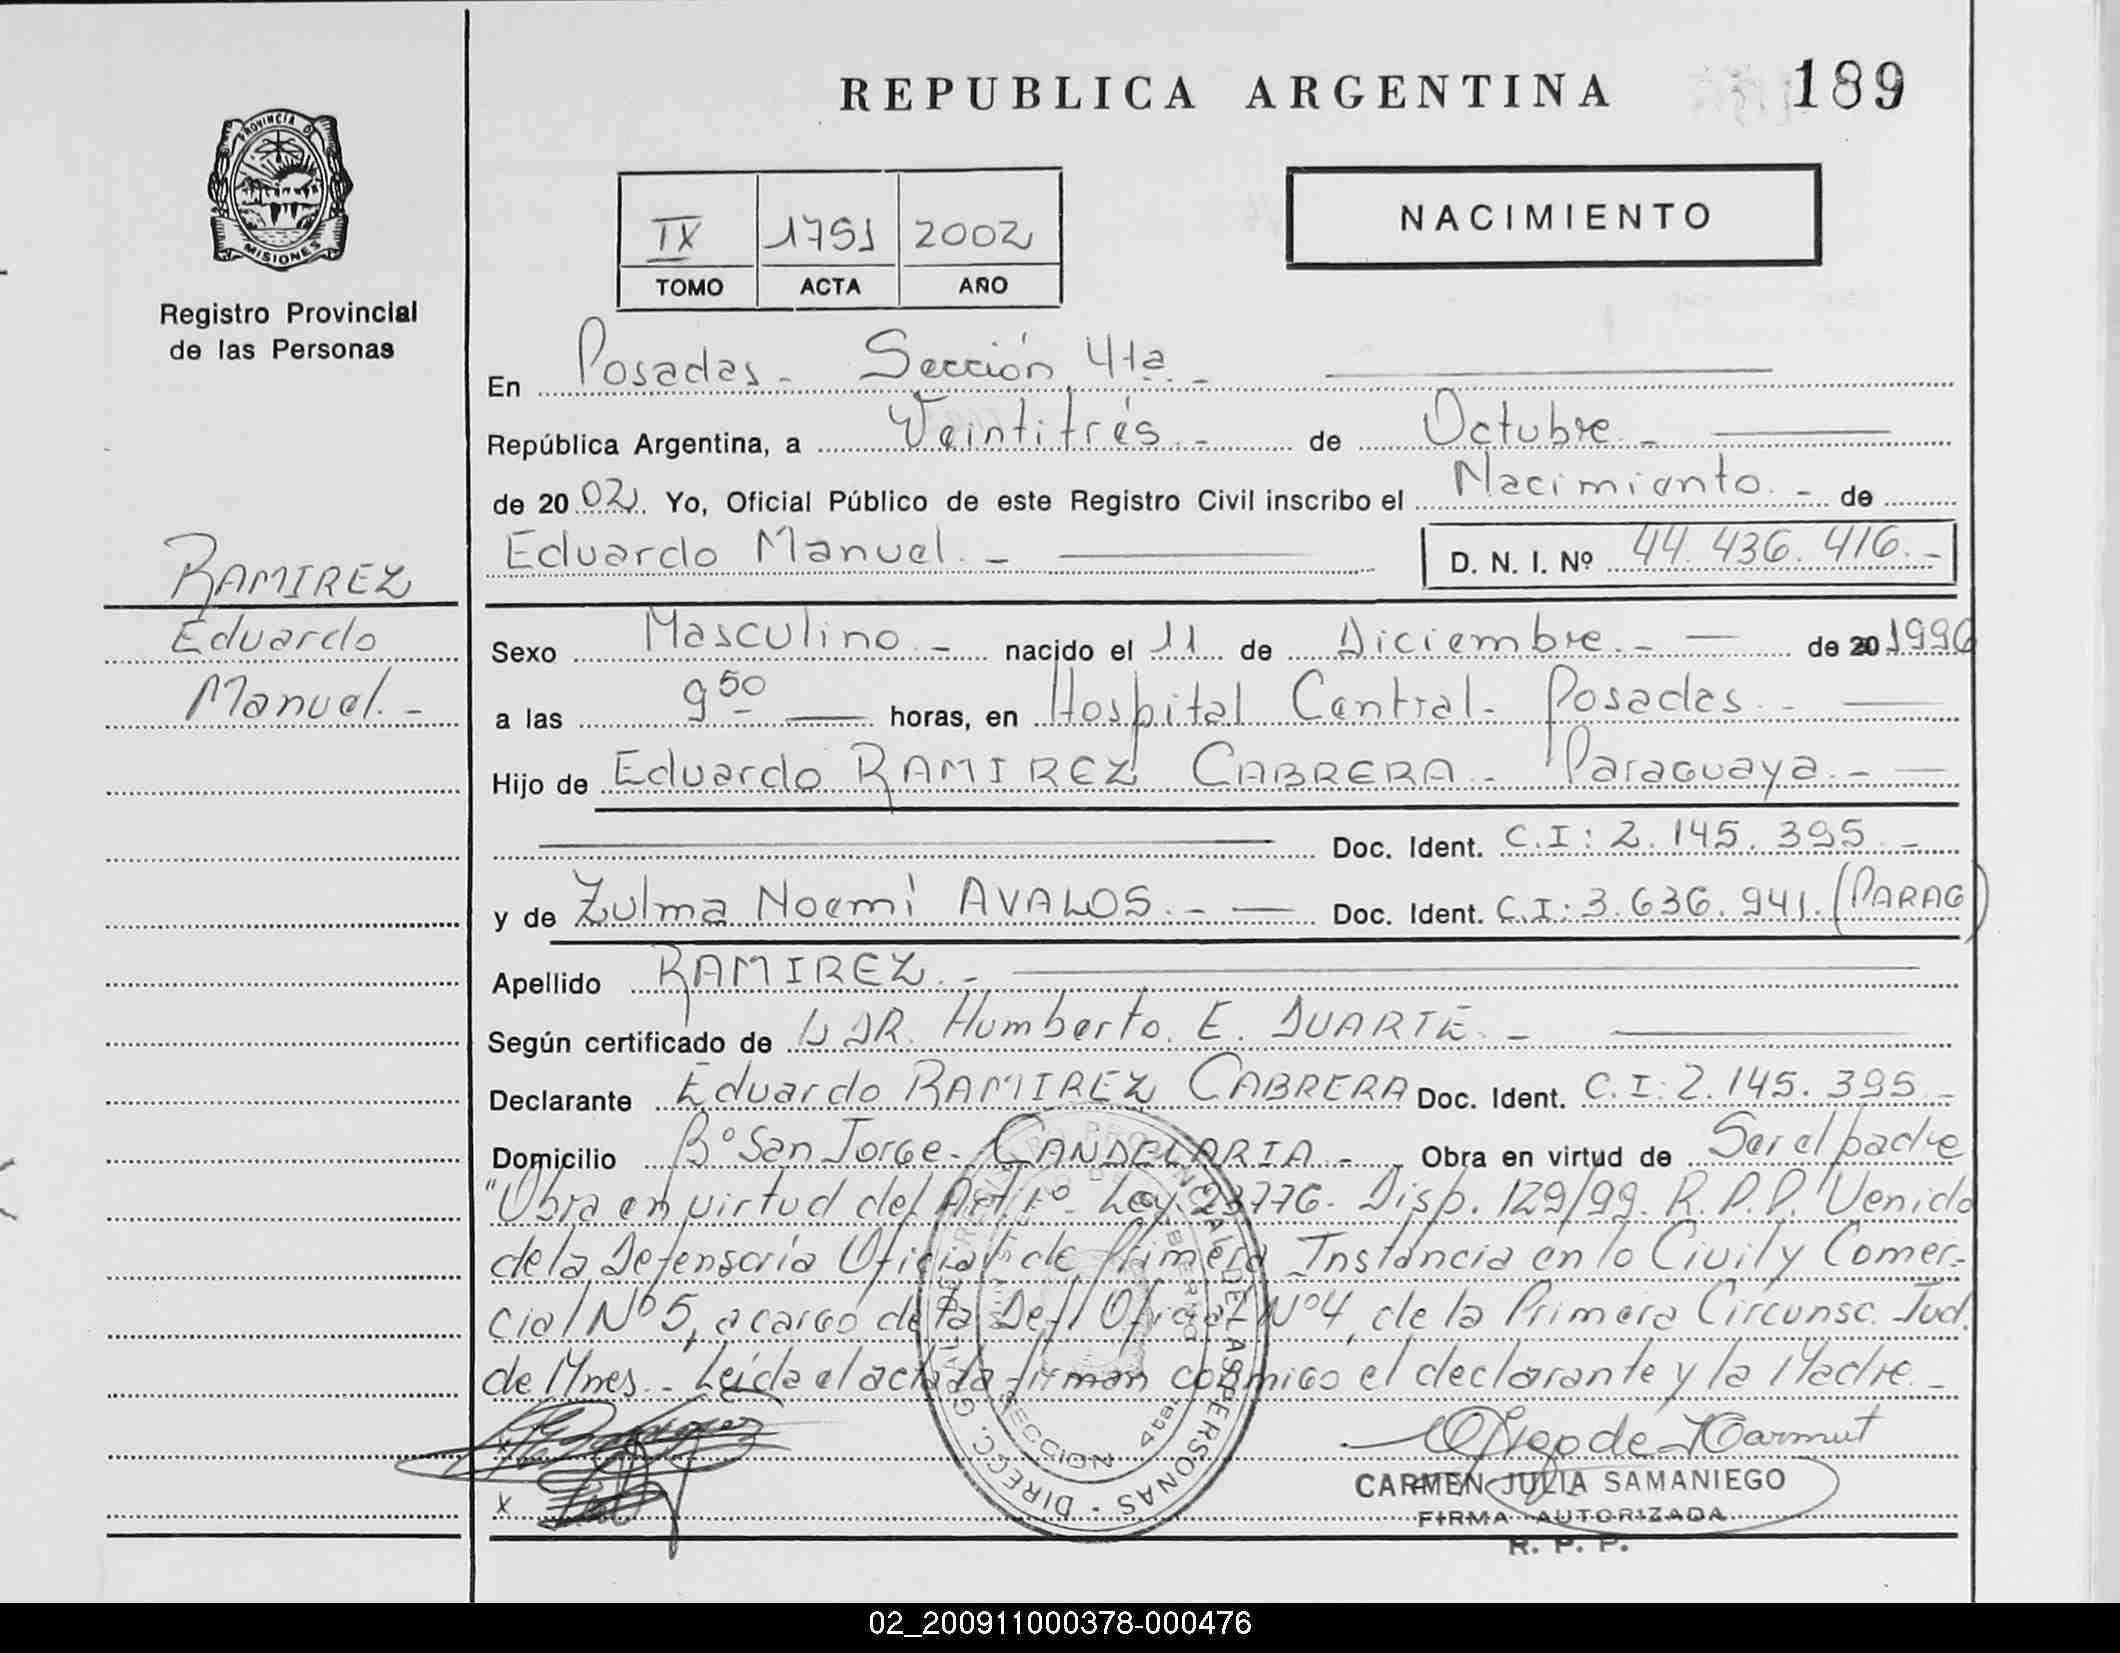 REPUBLICA ARGENTINA
189
PROVINCIA DE
MISIONES
Registro Provincial
de las Personas
IX 1751 2002
TOMO ACTA AÑO
NACIMIENTO
En Posadas - Sección 4ta. -
República Argentina, a Veintitrés. - de Octubre. -
de 20 02. Yo, Oficial Público de este Registro Civil inscribo el Nacimiento. - de
Eduardo Manuel. - D. N. I. Nº 44.436.416. -
RAMIREZ
Eduardo
Manuel. -
Sexo Masculino. - nacido el 11 de Diciembre. - de 20 1996
a las 9 50 horas, en Hospital Central - Posadas. -
Hijo de Eduardo RAMIREZ CABRERA - Paraguaya. -
Doc. Ident. C.I: 2.145.395. -
y de Zulma Noemí AVALOS. - Doc. Ident. C.I: 3.636.941. (PARAG)
Apellido RAMIREZ. -
Según certificado de DR. Humberto E. DUARTE. -
Declarante Eduardo RAMIREZ CABRERA Doc. Ident. C.I: 2.145.395 -
Domicilio Bº San Jorge - CANDELARIA. - Obra en virtud de Ser el padre
"Obra en virtud del Art. 1º Ley 23776 - Disp. 129/99. R.P.P. Venido
de la Defensoría Oficial de Primera Instancia en lo Civil y Comer-
cial Nº 5, a cargo de la Def. Oficial Nº 4, de la Primera Circunsc. Jud.
de Mnes. - Leída el acta la firman conmigo el declarante y la Madre. -
x
DIRECC. GRAL. DEL REGISTRO PROVINCIAL DE LAS PERSONAS
SECCION 4ta.
CARMEN JULIA SAMANIEGO
FIRMA AUTORIZADA
R. P. P.
02_200911000378-000476